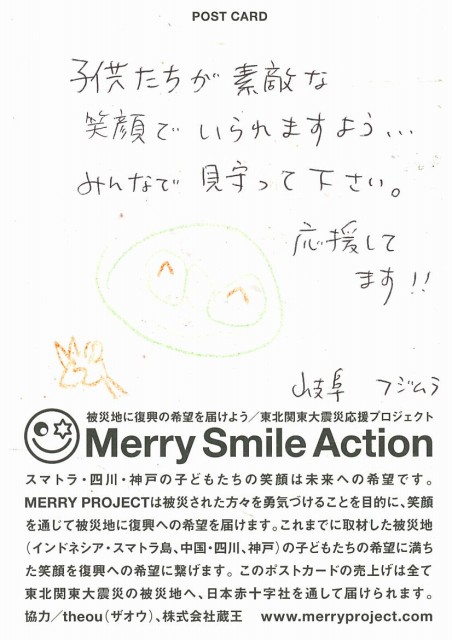 POST CARD
子供たちが素敵な
笑顔でいられますよう...
みんなで見守って下さい。
応援して
ます!!
岐阜 フジムラ
被災地に復興の希望を届けよう/東北関東大震災応援プロジェクト
Merry Smile Action
スマトラ・四川・神戸の子どもたちの笑顔は未来への希望です。
MERRY PROJECTは被災された方々を勇気づけることを目的に、笑顔
を通じて被災地に復興への希望を届けます。これまでに取材した被災地
(インドネシア・スマトラ島、中国・四川、神戸)の子どもたちの希望に満ち
た笑顔を復興への希望に繋げます。このポストカードの売上げは全て
東北関東大震災の被災地へ、日本赤十字社を通して届けられます。
協力/theou(ザオウ)、株式会社蔵王 www.merryproject.com